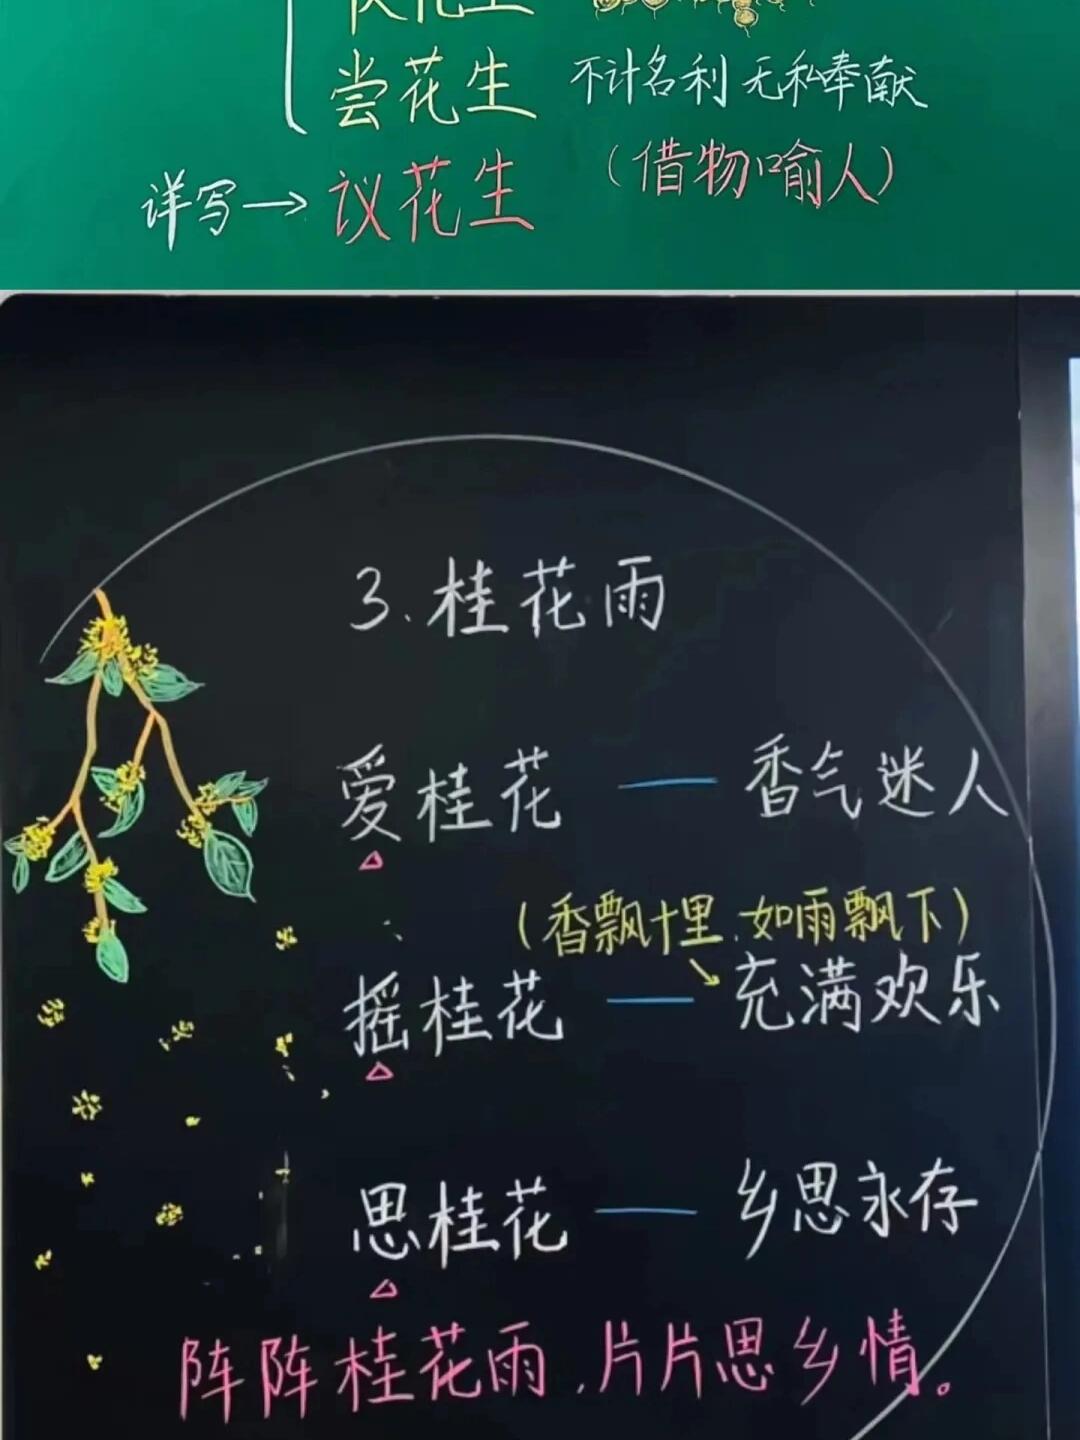 花生
尝花生 不计名利 无私奉献
详写→议花生 （借物喻人）
3.桂花雨
爱桂花 — 香气迷人
（香飘十里、如雨飘下）
摇桂花 — 充满欢乐
思桂花 — 乡思永存
阵阵桂花雨，片片思乡情。